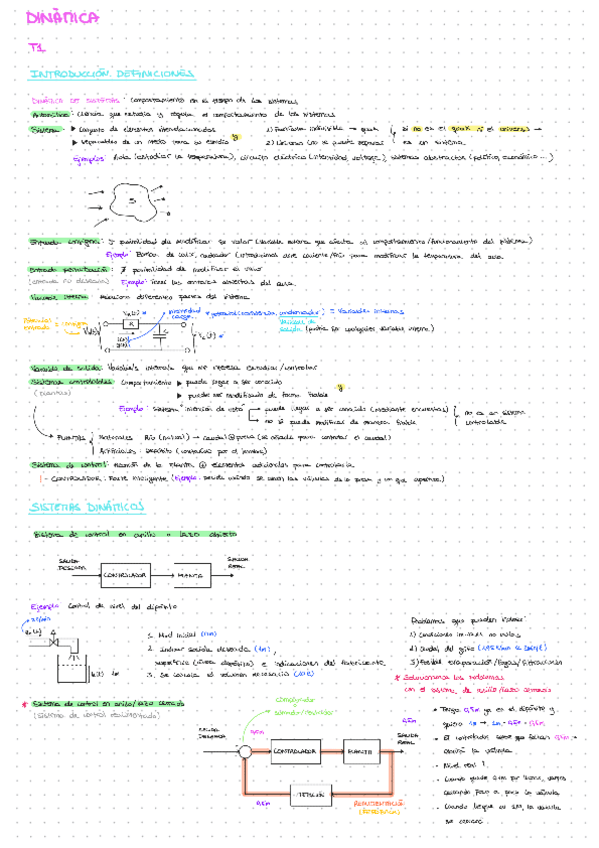 DINÁMICA
T1
INTRODUCCIÓN DEFINICIONES
DINÁMICA DE SISTEMAS: Comportamiento en el tiempo de los sistemas
Automática: Ciencia que estudia y regula el comportamiento de los sistemas
Sistema: ▶ Conjunto de elementos interrelacionados
y
1) Partícula indivisible → quark
si no es el quark ni el universo →
▶ Separables de un medio para su estudio
2) Universo (no se puede separar)
es un sistema
Ejemplos: Aula (estudiar la temperatura), circuito eléctrico (intensidad, voltaje), sistemas abstractos (político, económico...)
S
Entrada : ∃ posibilidad de modificar su valor (variable externa que afecta al comportamiento/funcionamiento del sistema)
Ejemplo: Bomba de calor, radiador (introducimos aire caliente/frío para modificar la temperatura del aula
Entrada perturbación: ∄ posibilidad de modificar el valor
Ejemplo: tener las ventanas abiertas del aula.
Variable interna: Relaciona diferentes partes del sistema
= Variables internas
Variable de
salida (podría ser cualquier variable interna)
Variable de salida: Variable interna que me interesa estudiar/controlar
Sistemas controlables: Comportamiento ▶ puede llegar a ser conocido
y
(PLANTAS)
▶ puede ser modificado de forma viable
Ejemplo: Sistema "intención de voto"
puede llegar a ser conocido (mediante encuestas)
no es un sistema
no se puede modificar de manera viable
controlable
PLANTAS
Naturales: Río (natural) → caudal presa (se añade para controlar el caudal)
Artificiales: Depósito (construido por el hombre)
Sistema de control: Reunión de la planta elementos adicionales para controlarla
- CONTROLADOR: Parte inteligente (Ejemplo: decide cuándo se abren las válvulas de la presa y en qué apertura)
SISTEMAS DINÁMICOS
Sistema de control en anillo o lazo abierto
SALIDA
DESEADA
CONTROLADOR
PLANTA
SALIDA
REAL
Ejemplo: Control de nivel del depósito
1. Nivel inicial (0m)
2. Indicar salida deseada (1m),
superficie (área depósito) e indicaciones del fabricante
3. Se calcula el volumen necesario
Problemas que pueden haber:
1) Condiciones iniciales no nulas
2) Caudal del grifo
3) Posible evaporación/fugas/filtraciones
* Solucionamos los problemas
con el sistema de anillo/lazo cerrado
* Sistema de control en anillo/lazo cerrado
(Sistema de control realimentado)
comparador
o
SALIDA
DESEADA
0,5m
CONTROLADOR
PLANTA
SALIDA
REAL
0,5m
0,5m
REALIMENTACIÓN
• Tengo 0,5m ya en el depósito y
quiero 1m → 1m - 0,5m = 0,5m
• El controlador sabe que faltan 0,5m →
abrirá la válvula
• Nivel real ↑
• Cuando quede 0,1m por llenar, vamos
cerrando poco a poco la válvula
• Cuando llegue a 1m, la válvula
se cerrará